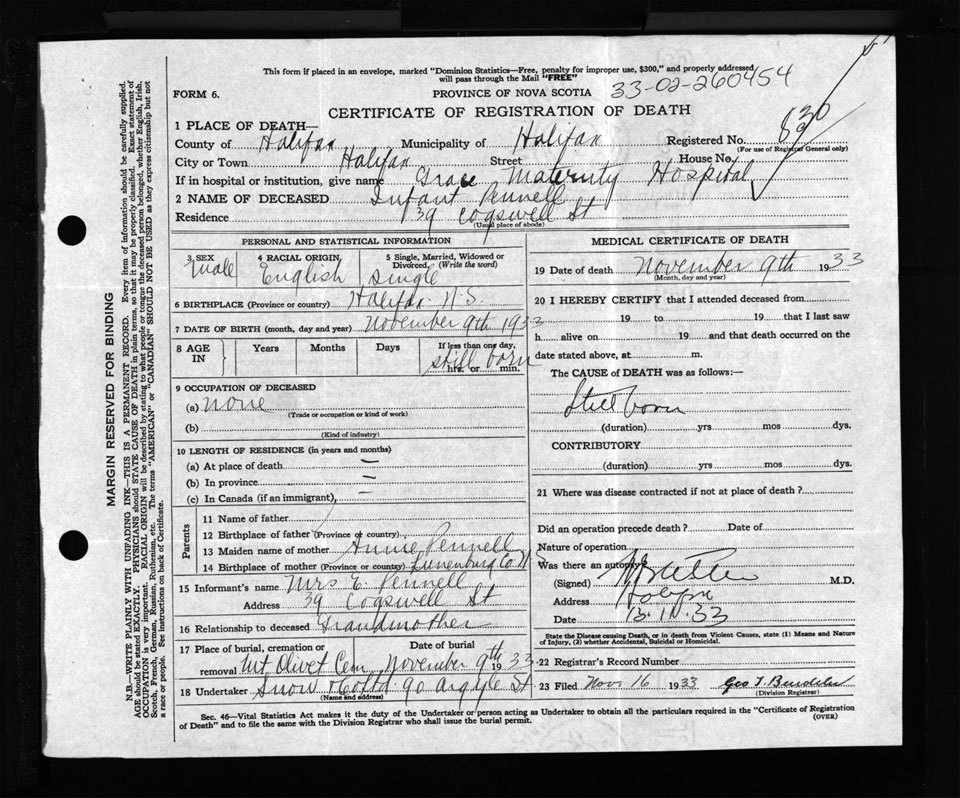 This form if placed in an envelope, marked "Dominion Statistics—Free, penalty for improper use, $300," and properly addressed
will pass through the Mail "FREE"
FORM 6.
PROVINCE OF NOVA SCOTIA
33-02-260454
CERTIFICATE OF REGISTRATION OF DEATH
1 PLACE OF DEATH—
County of Halifax Municipality of Halifax Registered No. 830
(For use of Registrar General only)
City or Town Halifax Street House No.
If in hospital or institution, give name Grace Maternity Hospital
2 NAME OF DECEASED Infant Pennell
Residence 39 Cogswell St
(Usual place of abode)
PERSONAL AND STATISTICAL INFORMATION
3 SEX 4 RACIAL ORIGIN 5 Single, Married, Widowed or
Divorced, (Write the word)
Male English Single
6 BIRTHPLACE (Province or country) Halifax N.S.
7 DATE OF BIRTH (month, day and year) November 9th 1933
8 AGE IN Years Months Days If less than one day,
still born
hrs. or min.
9 OCCUPATION OF DECEASED
(a) none
(Trade or occupation or kind of work)
(b)
(Kind of industry)
10 LENGTH OF RESIDENCE (in years and months)
(a) At place of death —
(b) In province —
(c) In Canada (if an immigrant)
Parents
11 Name of father
12 Birthplace of father (Province or country)
13 Maiden name of mother Annie Pennell
14 Birthplace of mother (Province or country) Lunenburg Co NS
15 Informant's name Mrs E. Pennell
Address 39 Cogswell St
16 Relationship to deceased Grandmother
17 Place of burial, cremation or Date of burial
removal Mt Olivet Cem November 9th 1933
18 Undertaker Snow & Co Ltd 90 Argyle St
(Name and address)
MEDICAL CERTIFICATE OF DEATH
19 Date of death November 9th 1933
(Month, day and year)
20 I HEREBY CERTIFY that I attended deceased from
19 to 19 that I last saw
h alive on 19 and that death occurred on the
date stated above, at m.
The CAUSE of DEATH was as follows:—
Still born
(duration) yrs mos dys.
CONTRIBUTORY
(duration) yrs mos dys.
21 Where was disease contracted if not at place of death?
Did an operation precede death? Date of
Nature of operation
Was there an autopsy?
(Signed) M.D.
Address
Date 13.11.33
State the Disease causing Death, or in death from Violent Causes, state (1) Means and Nature
of Injury, (2) whether Accidental, Suicidal or Homicidal.
22 Registrar's Record Number
23 Filed Nov 16 1933 Geo
(Division Registrar)
Sec. 46—Vital Statistics Act makes it the duty of the Undertaker or person acting as Undertaker to obtain all the particulars required in the "Certificate of Registration
of Death" and to file the same with the Division Registrar who shall issue the burial permit.
(OVER)
MARGIN RESERVED FOR BINDING
N.B.—WRITE PLAINLY WITH UNFADING INK—THIS IS A PERMANENT RECORD. Every item of information should be carefully supplied.
AGE should be stated EXACTLY. PHYSICIANS should STATE CAUSE OF DEATH in plain terms, so that it may be properly classified. Exact statement of
OCCUPATION is very important. RACIAL ORIGIN will be described by stating to what people or tongue the deceased person belonged, whether English, Irish,
Scotch, French, German, Russian, Ruthenian, etc. The terms "AMERICAN" or "CANADIAN" SHOULD NOT BE USED as they express citizenship but not
a race or people. See instructions on back of Certificate.